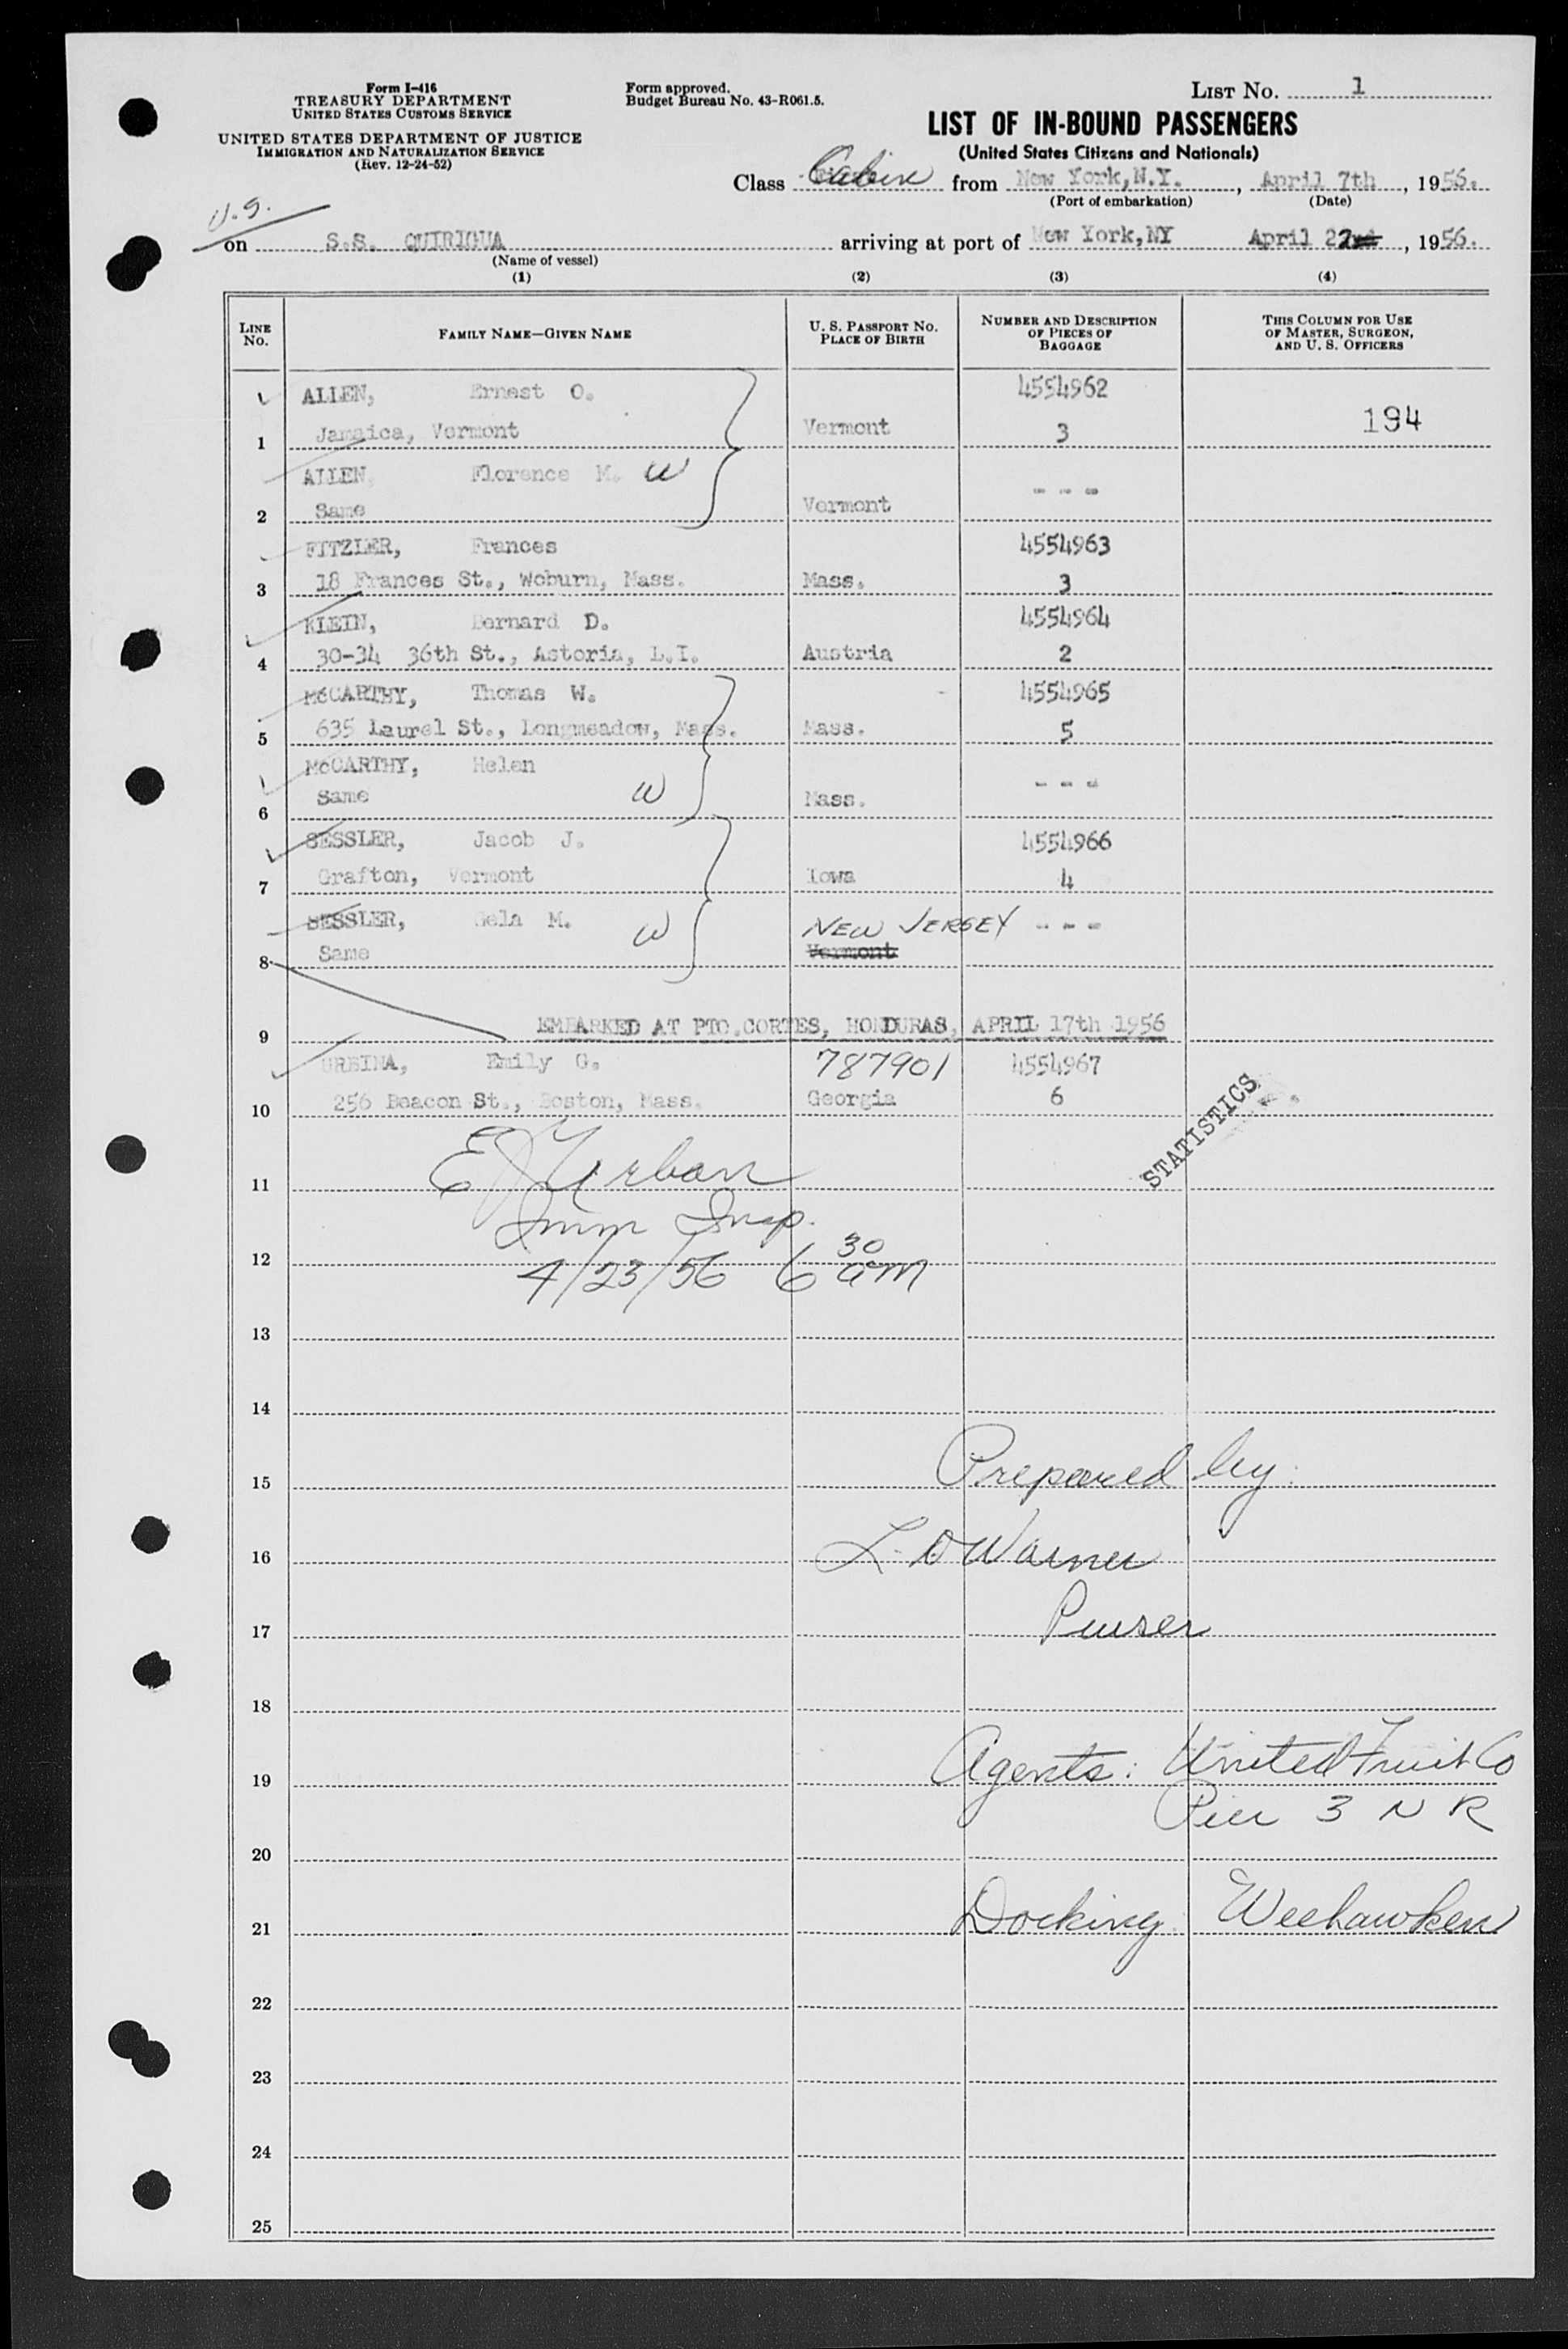 Form I-416
TREASURY DEPARTMENT
UNITED STATES CUSTOMS SERVICE
UNITED STATES DEPARTMENT OF JUSTICE
IMMIGRATION AND NATURALIZATION SERVICE
(Rev. 12-24-52)
Form approved.
Budget Bureau No. 43-R061.5.
LIST NO. 1
LIST OF IN-BOUND PASSENGERS
(United States Citizens and Nationals)
Class Cabin from New York, N.Y. , April 7th , 1956.
(Port of embarkation) (Date)
U.S.
on S.S. QUIRIGUA arriving at port of New York, NY April 22 , 1956.
(Name of vessel)
(1) (2) (3) (4)
LINE NO. FAMILY NAME—GIVEN NAME U. S. PASSPORT NO. PLACE OF BIRTH NUMBER AND DESCRIPTION OF PIECES OF BAGGAGE THIS COLUMN FOR USE OF MASTER, SURGEON, AND U. S. OFFICERS
ALLEN, Ernest O. 4554962
1 Jamaica, Vermont Vermont 3 194
ALLEN, Florence M. W
2 Same Vermont - - -
FITZLER, Frances 4554963
3 18 Frances St., Woburn, Mass. Mass. 3
KLEIN, Bernard D. 4554964
4 30-34 36th St., Astoria, L.I. Austria 2
McCARTHY, Thomas W. 4554965
5 635 Laurel St., Longmeadow, Mass. Mass. 5
McCARTHY, Helen
6 Same W Mass. - - -
SESSLER, Jacob J. 4554966
7 Grafton, Vermont Iowa 4
SESSLER, Gela M. W NEW JERSEY - - -
8 Same Vermont
9 EMBARKED AT PTO.CORTES, HONDURAS, APRIL 17th 1956
URBINA, Emily G. 787901 4554967
10 256 Beacon St., Boston, Mass. Georgia 6
STATISTICS
11 E J Urban
Imm Insp.
12 4/23/56 6 30 am
13
14
15 Prepared by:
16 L. D Warner
17 Purser
18
19 Agents: United Fruit Co
Pier 3 N R
20
21 Docking Weehawken
22
23
24
25